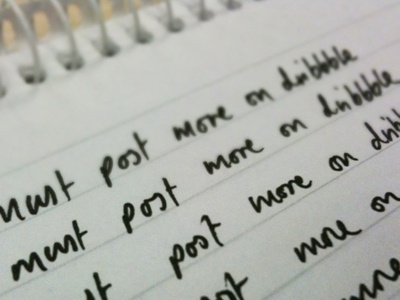 must post more on dribbble
must post more on dribbble
post more on dribb
more on